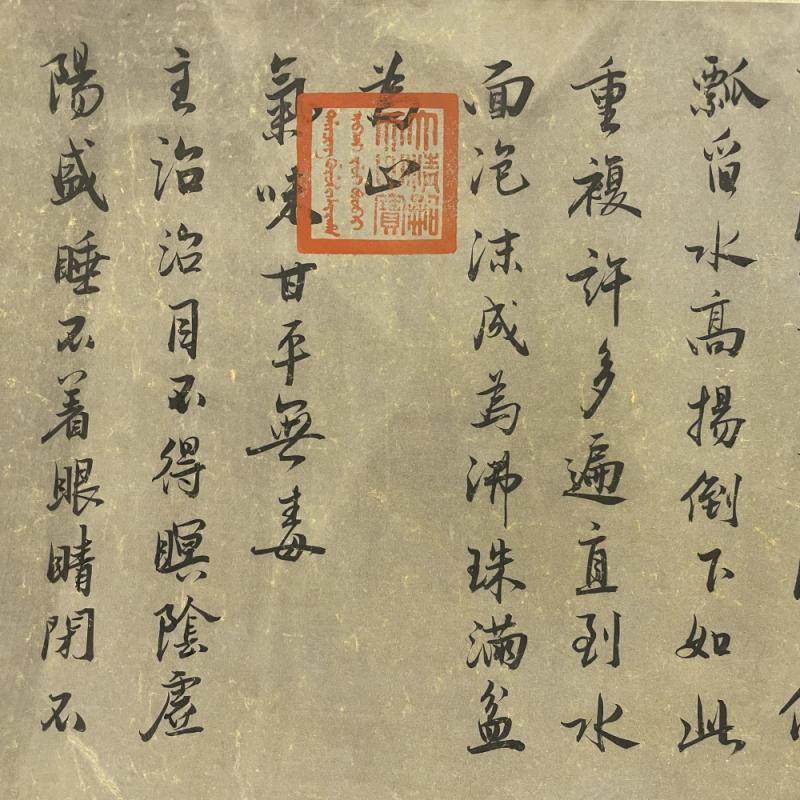 瓢舀水高揚倒下如此
重複許多遍直到水
面泡沫成為沸珠滿盆
為止
氣味甘平無毒
主治治目不得瞑陰虛
陽盛睡不着眼睛閉不